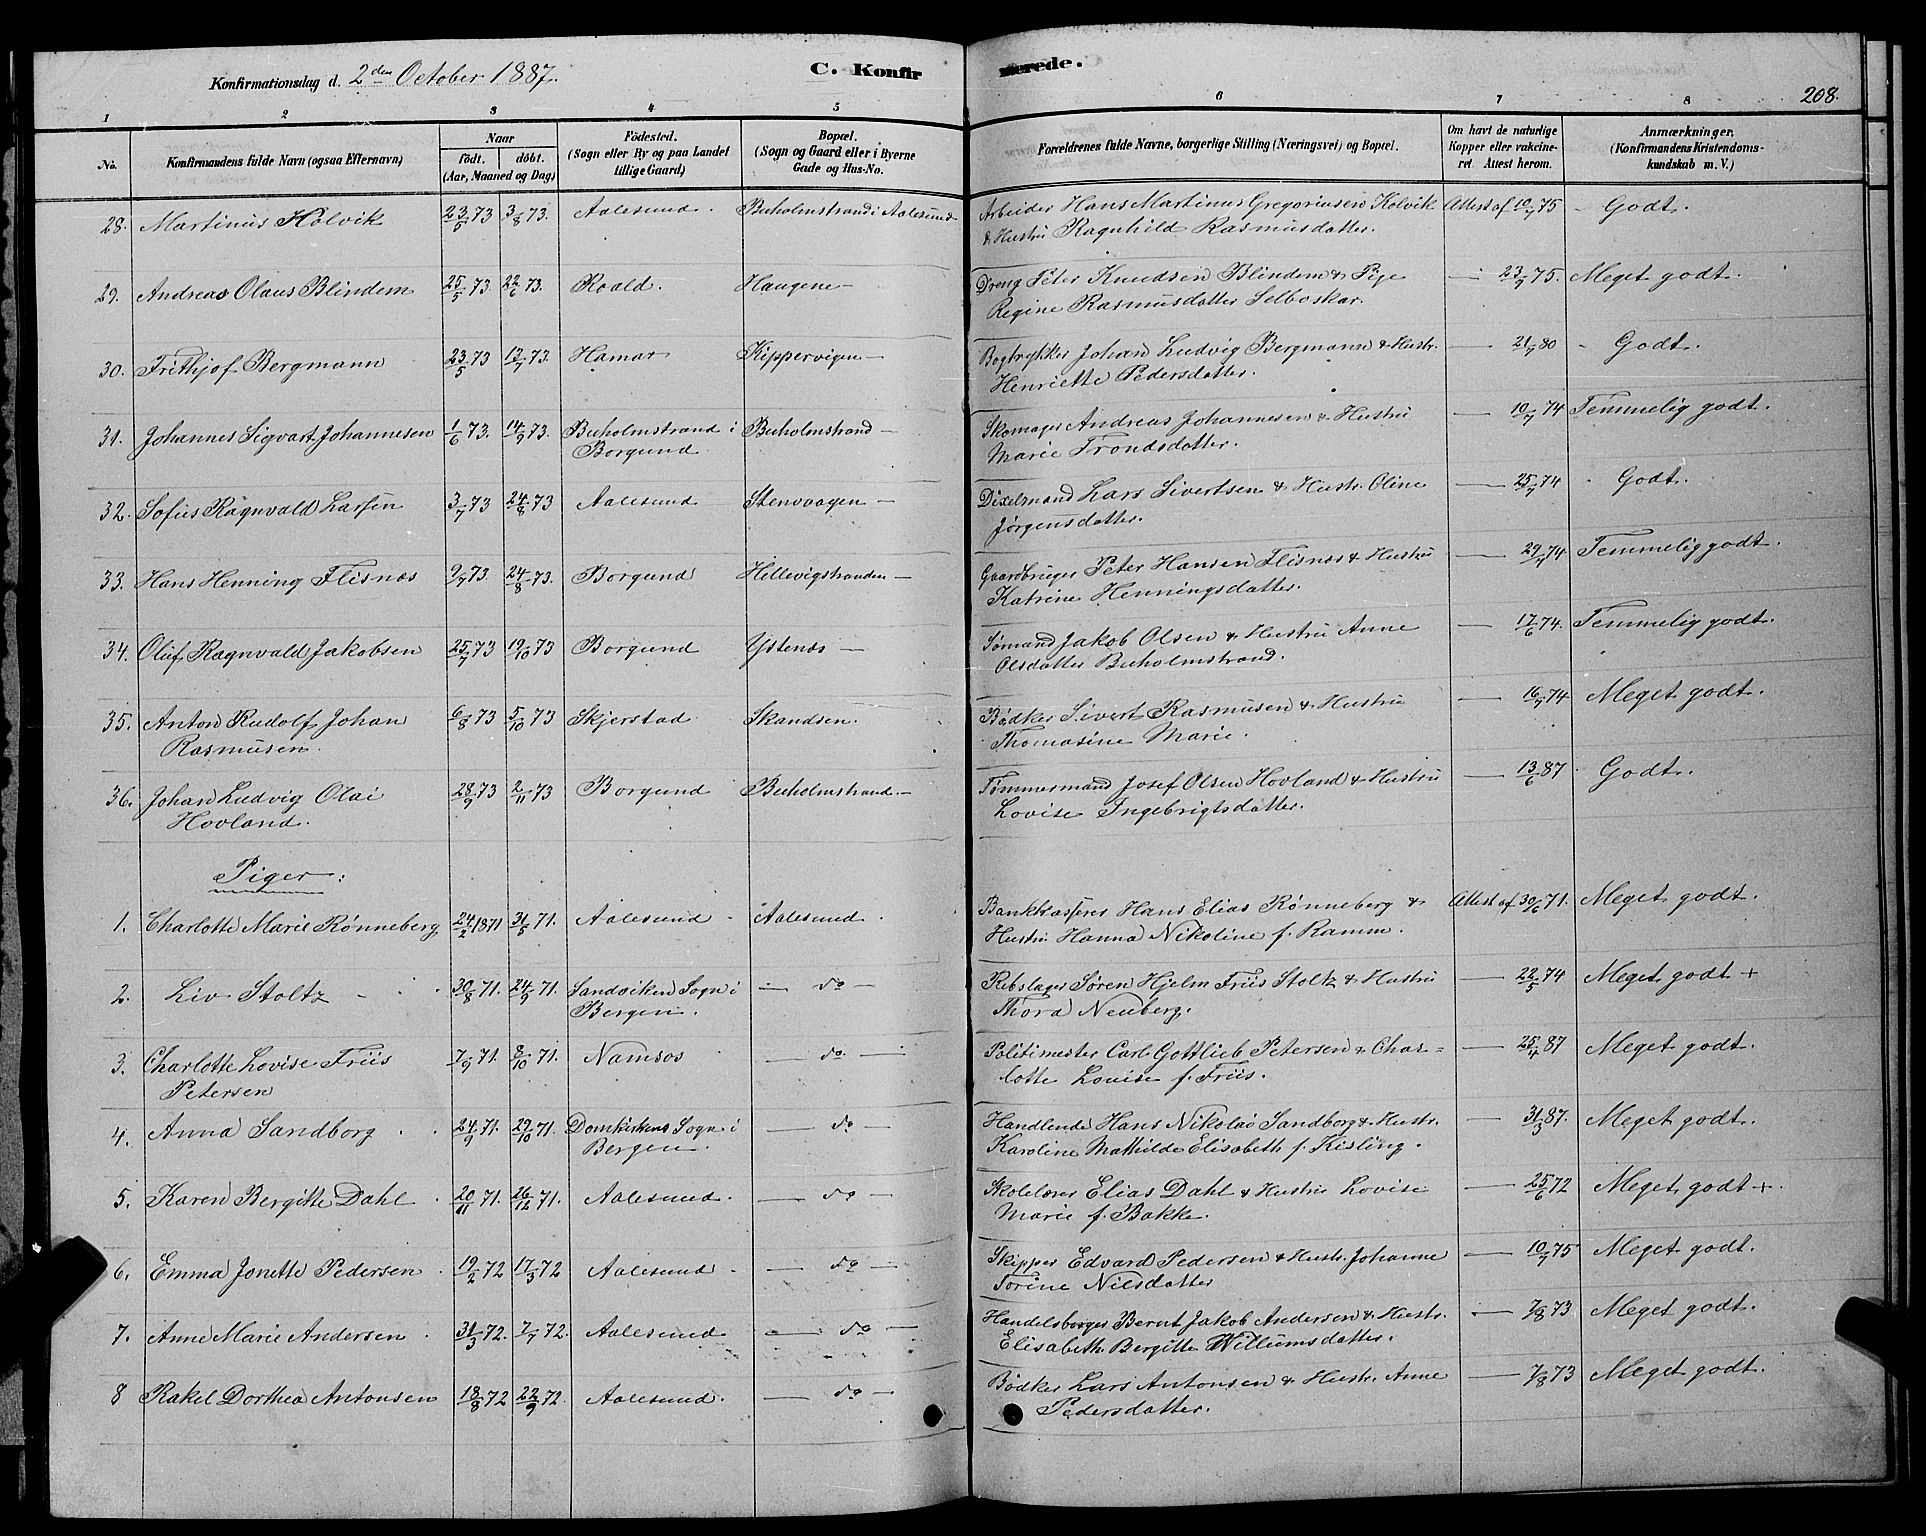 Konfirmationsdag d. 2den October 1887.
C. Konfirmerede.
208.
1 2 3 4 5 6 7 8
No.
Konfirmandens fulde Navn (ogsaa Efternavn)
Naar
født. døbt.
(Aar, Maaned og Dag)
Fødested.
(Sogn eller By og paa Landet
tillige Gaard)
Bopæl.
(Sogn og Gaard eller i Byerne
Gade og Hus-No.
Forældrenes fulde Navne, borgerlige Stilling (Næringsvei) og Bopæl.
Om havt de naturlige
Kopper eller vakcine-
ret. Attest herom.
Anmærkninger.
(Konfirmandens Kristendoms-
kundskab m. V.)
28. Martinus Kolvik 23/5 73 3/8 73. Aalesund. Buholmstrand i Aalesund Arbeider Hans Martinus Gregoriusen Kolvik Attest af 10/7 75 - Godt.
& Hustru Ragnhild Rasmusdatter.
29. Andreas Olaus Blindem 25/5 73 22/6 73. Roald. Haugene — Dreng Peter Knudsen Blindem & Pige — 23/7 75. Meget godt.
Regine Rasmusdatter Selboskar.
30. Frithjof Bergmann 23/5 73 13/7 73. Hamar Kippervigen — Bogtrykker Johan Ludvig Bergmann & Hustr. — 21/7 80 - Godt.
Henriette Pedersdatter.
31. Johannes Sigvart Johannesen 1/6 73. 14/9 73. Buholmstrand i Buholmstrand — Skomager Andreas Johannesen & Hustru — 10/7 74 Temmelig godt.
Borgund. Marie Trondsdatter.
32. Sofus Ragnvald Larsen 3/7 73 24/8 73 Aalesund Stenvaagen — Dixelmand Lars Sivertsen & Hustr. Oline — 25/7 74 - Godt.
Jørgensdatter.
33. Hans Henning Flisnes 9/7 73. 24/8 73. Borgund Hellevigstranden — Gaardbruger Peter Hansen Flisnes & Hustru — 29/7 74 Temmelig godt.
Katrine Henningsdatter.
34. Oluf Ragnvald Jakobsen 25/7 73 19/10 73 Borgund Ystenes — Sømand Jakob Olsen & Hustru Anne — 17/6 74. Temmelig godt.
Olsdatter Buholmstrand.
35. Anton Rudolf Johan 6/8 73 5/10 73 Skjerstad Skandsen. Bødker Sivert Rasmusen & Hustru — 16/7 74 Meget godt.
Rasmusen. Thomasine Marie.
36. Johan Ludvig Olai 28/9 73 2/11 73 Borgund Buholmstrand. — Tømmermand Josef Olsen Hovland & Hustru — 13/6 87 Godt.
Hovland. Lovise Ingebrigtsdatter.
Piger:
1. Charlotte Marie Rønneberg 24/2 1871 31/5 71. Aalesund Aalesund. Bankkasserer Hans Elias Rønneberg & Attest af 30/6 71. Meget godt.
Hustru Hanna Nikoline f. Ramm.
2. Liv Stoltz 20/8 71. 24/9 71. Sandviken Sogn i — do — Rebslager Søren Hjelm Friis Stoltz & Hustru — 22/5 74 Meget godt +
Bergen. Thora Neuberg.
3. Charlotte Lovise Friis 7/9 71. 8/10 71. Namsos — do — Politimester Carl Gottlieb Petersen & Char= — 25/4 87 Meget godt.
Petersen lotte Louise f. Friis.
4. Anna Sandborg 24/9 71. 29/10 71. Domkirkens Sogn i — do — Handlende Hans Nikolai Sandborg & Hustr. — 31/3 87. Meget godt.
Bergen. Karoline Mathilde Elisabeth f. Kisling.
5. Karen Bergitte Dahl 20/11 71. 26/12 71. Aalesund. — do — Skolelærer Elias Dahl & Hustru Lovise — 25/6 72 Meget godt +
Marie f. Bakke.
6. Emma Jonette Pedersen 19/2 72 17/3 72 Aalesund — do — Skipper Edvard Pedersen & Hustr. Johanne — 10/7 75 Meget godt.
Torine Nilsdatter
7. Anne Marie Andersen 31/3 72. 7/7 72. Aalesund — do — Handelsborger Bernt Jakob Andersen & Hustr. — 7/8 73 Meget godt.
Elisabeth Bergitte Willumsdatter.
8 Rakel Dorthea Antonsen 18/8 72 22/9 72. Aalesund. — do — Bødker Lars Antonsen & Hustr. Anne — 7/8 73 Meget godt.
Pedersdatter.